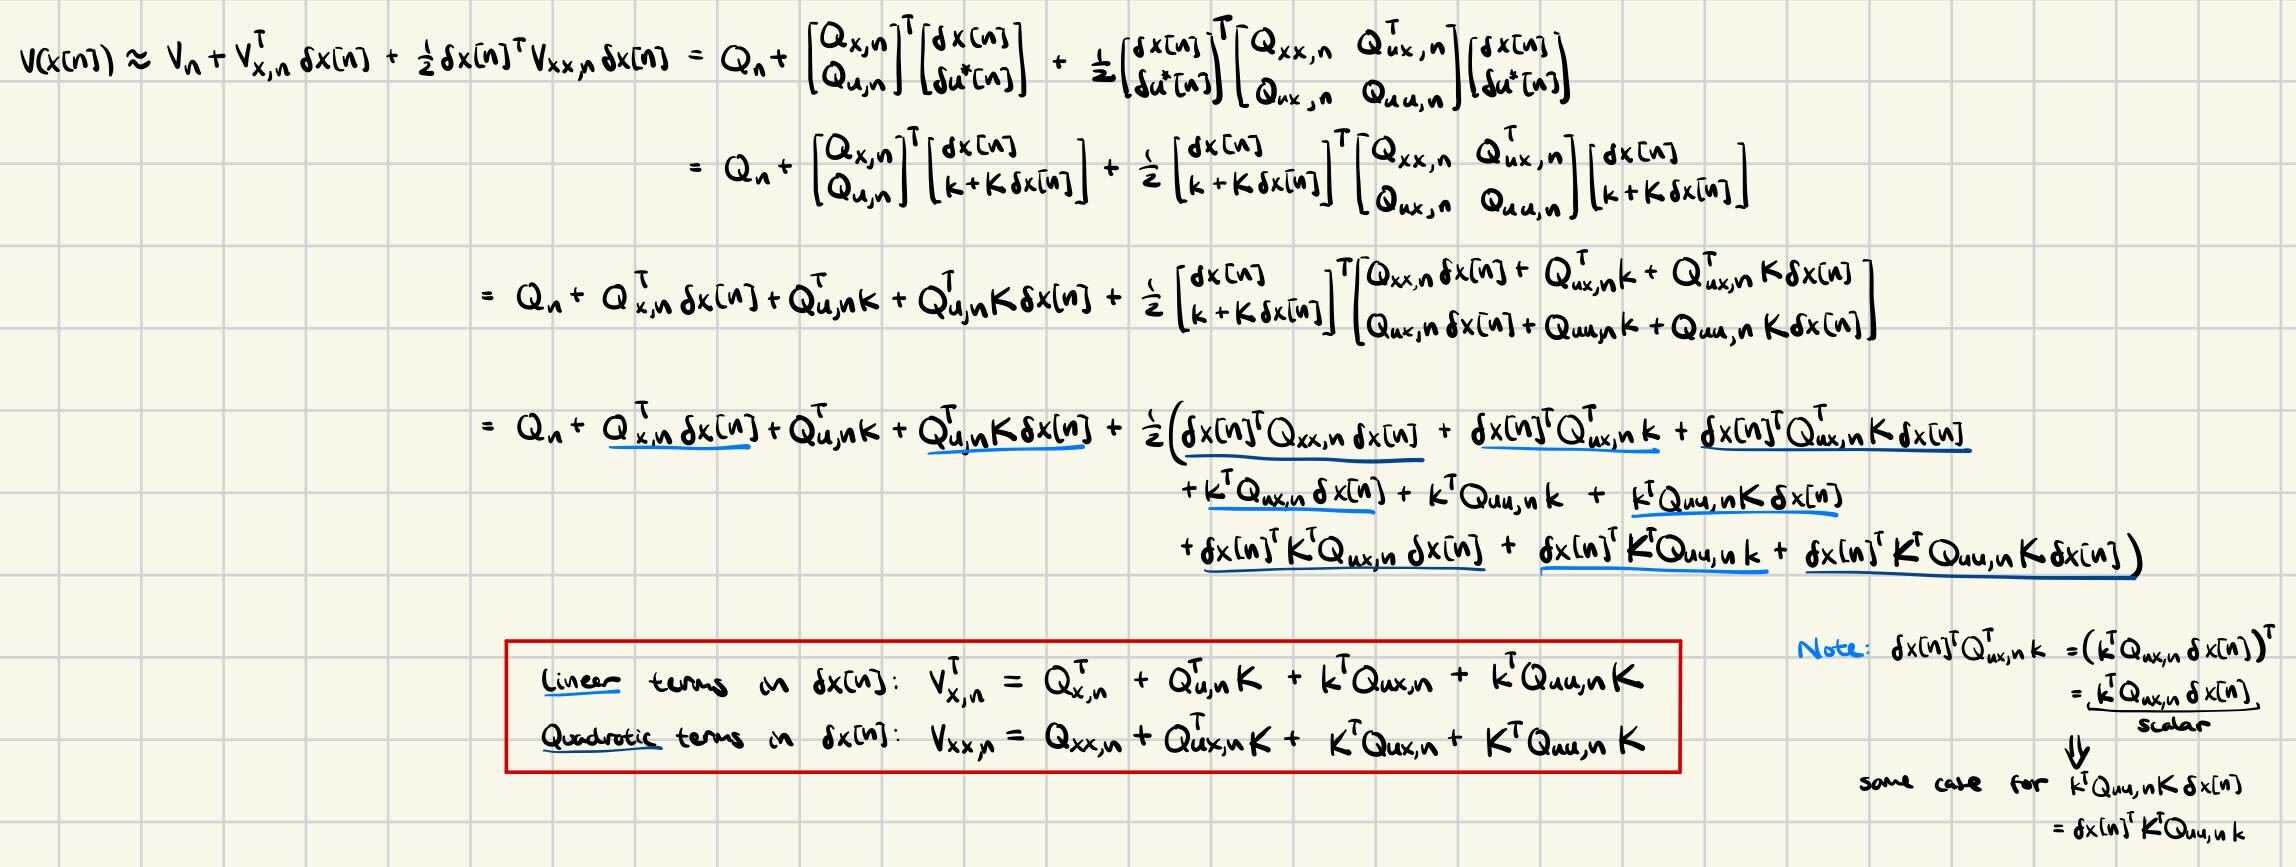 V(x[n]) ≈ V_n + V_{x,n}^T δx[n] + ½ δx[n]^T V_{xx,n} δx[n] = Q_n + [Q_{x,n}; Q_{u,n}]^T [δx[n]; δu*[n]] + ½ [δx[n]; δu*[n]]^T [Q_{xx,n} Q_{ux,n}^T; Q_{ux,n} Q_{uu,n}] [δx[n]; δu*[n]]
= Q_n + [Q_{x,n}; Q_{u,n}]^T [δx[n]; k + K δx[n]] + ½ [δx[n]; k + K δx[n]]^T [Q_{xx,n} Q_{ux,n}^T; Q_{ux,n} Q_{uu,n}] [δx[n]; k + K δx[n]]
= Q_n + Q_{x,n}^T δx[n] + Q_{u,n}^T k + Q_{u,n}^T K δx[n] + ½ [δx[n]; k + K δx[n]]^T [Q_{xx,n} δx[n] + Q_{ux,n}^T k + Q_{ux,n}^T K δx[n]; Q_{ux,n} δx[n] + Q_{uu,n} k + Q_{uu,n} K δx[n]]
= Q_n + Q_{x,n}^T δx[n] + Q_{u,n}^T k + Q_{u,n}^T K δx[n] + ½ (δx[n]^T Q_{xx,n} δx[n] + δx[n]^T Q_{ux,n}^T k + δx[n]^T Q_{ux,n}^T K δx[n]
+ k^T Q_{ux,n} δx[n] + k^T Q_{uu,n} k + k^T Q_{uu,n} K δx[n]
+ δx[n]^T K^T Q_{ux,n} δx[n] + δx[n]^T K^T Q_{uu,n} k + δx[n]^T K^T Q_{uu,n} K δx[n])
Linear terms in δx[n]: V_{x,n}^T = Q_{x,n}^T + Q_{u,n}^T K + k^T Q_{ux,n} + k^T Q_{uu,n} K
Quadratic terms in δx[n]: V_{xx,n} = Q_{xx,n} + Q_{ux,n}^T K + K^T Q_{ux,n} + K^T Q_{uu,n} K
Note: δx[n]^T Q_{ux,n}^T k = (k^T Q_{ux,n} δx[n])^T
= k^T Q_{ux,n} δx[n]
scalar
⇓
same case for k^T Q_{uu,n} K δx[n]
= δx[n]^T K^T Q_{uu,n} k